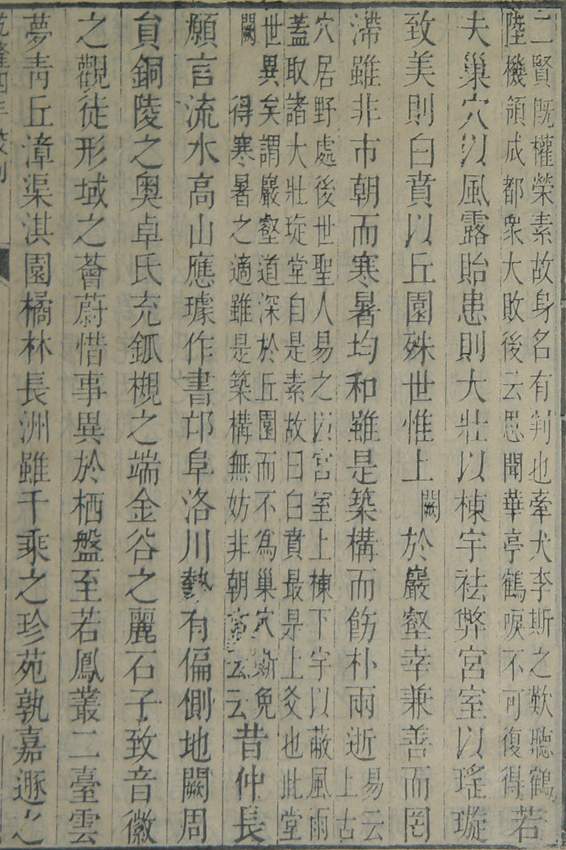 二賢既權榮素故身名有判也牽犬李斯之歎聽鶴
陸機領成都衆大敗後云思聞華亭鶴唳不可復得
若
夫巢穴以風露貽患則大壯以棟宇祛弊宮室以瑤璇
致美則白賁以丘園殊世惟上闕於巖壑幸兼善而罔
滯雖非市朝而寒暑均和雖是築構而飭朴兩逝
易云
上古
穴居野處後世聖人易之以宮室上棟下宇以蔽風雨
蓋取諸大壯琁堂自是素故曰白賁最是上爻也此堂
世異矣謂巖壑道深於丘園而不為巢穴斯免
闕得寒暑之適雖是築構無妨非朝市云云
昔仲長
願言流水高山應璩作書邙阜洛川勢有偏側地闕周
員銅陵之奥卓氏充釽槻之端金谷之麗石子致音徽
之觀徒形域之薈蔚惜事異於栖盤至若鳳叢二臺雲
夢青丘漳渠淇園橘林長洲雖千乘之珍苑孰嘉遯之
乾隆四年校刊